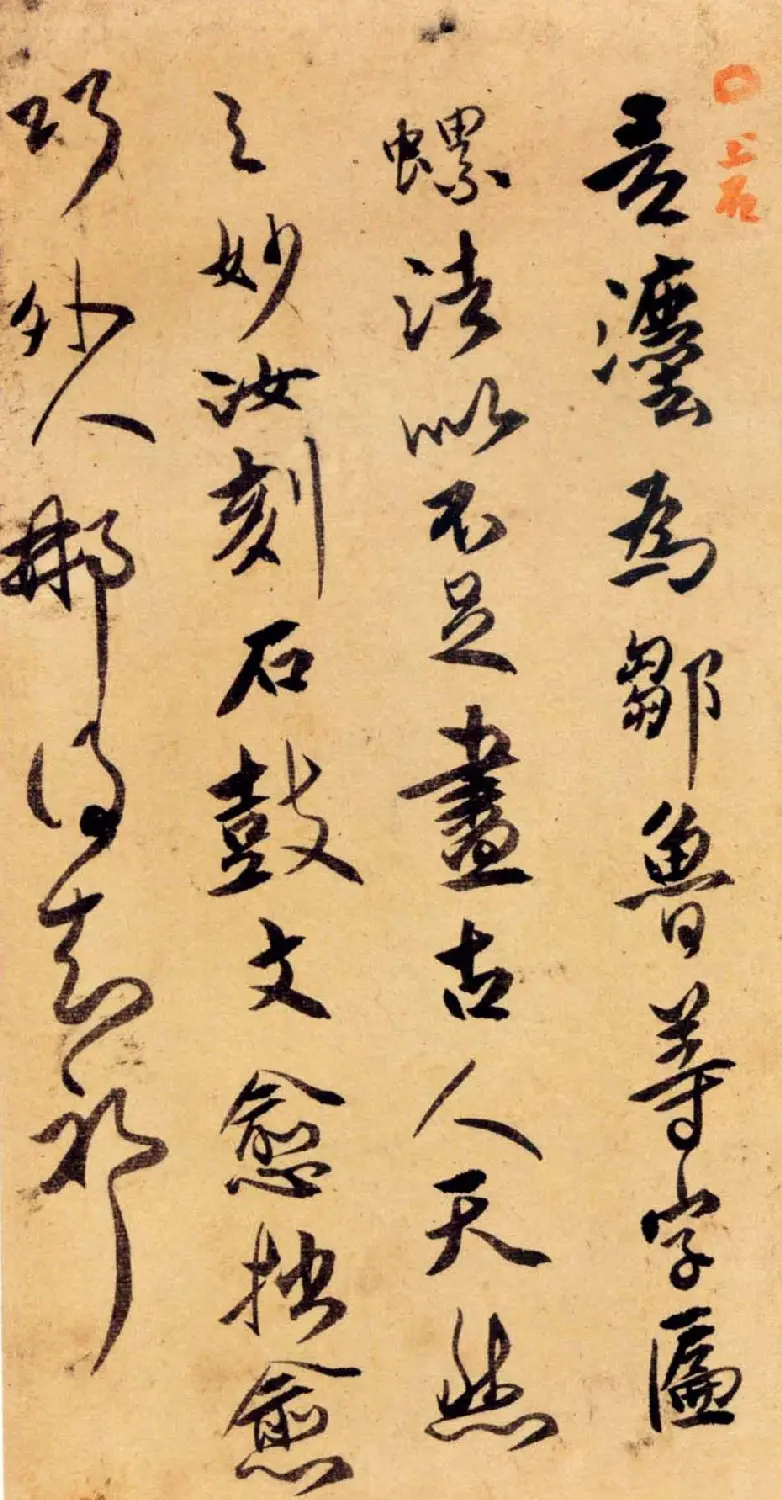 上石
吾灋為鄒魯等字匾
螺法似不足盡古人天然
之妙汝刻石鼓文愈拙愈
巧外人那得知耶